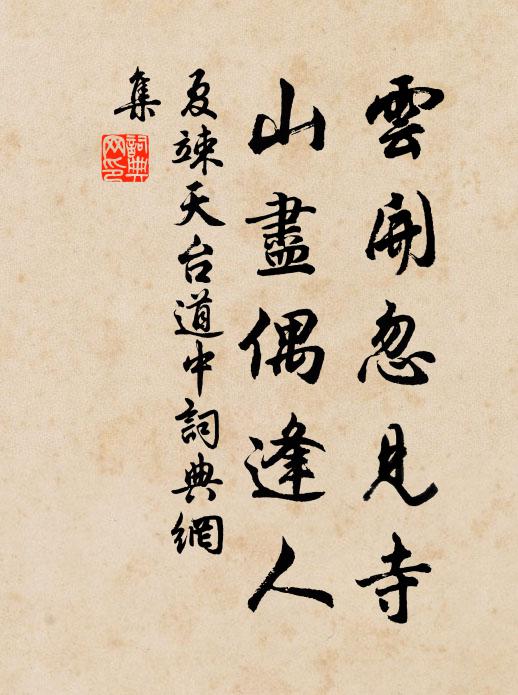 雲開忽見寺
山盡偶逢人
夏竦天台道中詞典網
集
詞典網印